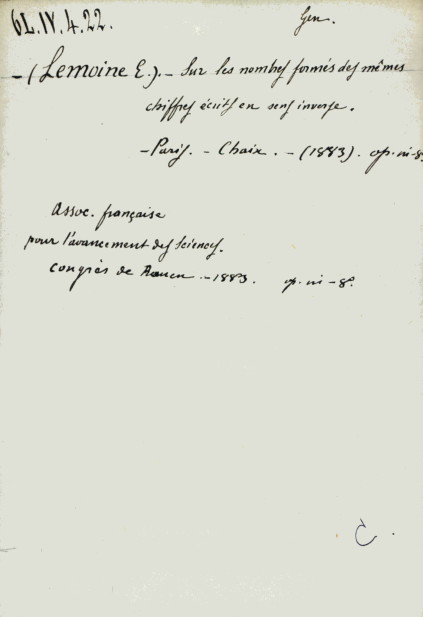 6L.IV.4.22.
Gen.
- (Lemoine E.). - Sur les nombres formés des mêmes
chiffres écrits en sens inverse.
- Paris. - Chaix. - (1883). op. in-8.
Assoc. française
pour l'avancement des Sciences.
Congrès de Rouen. - 1883. op. in-8.
C.